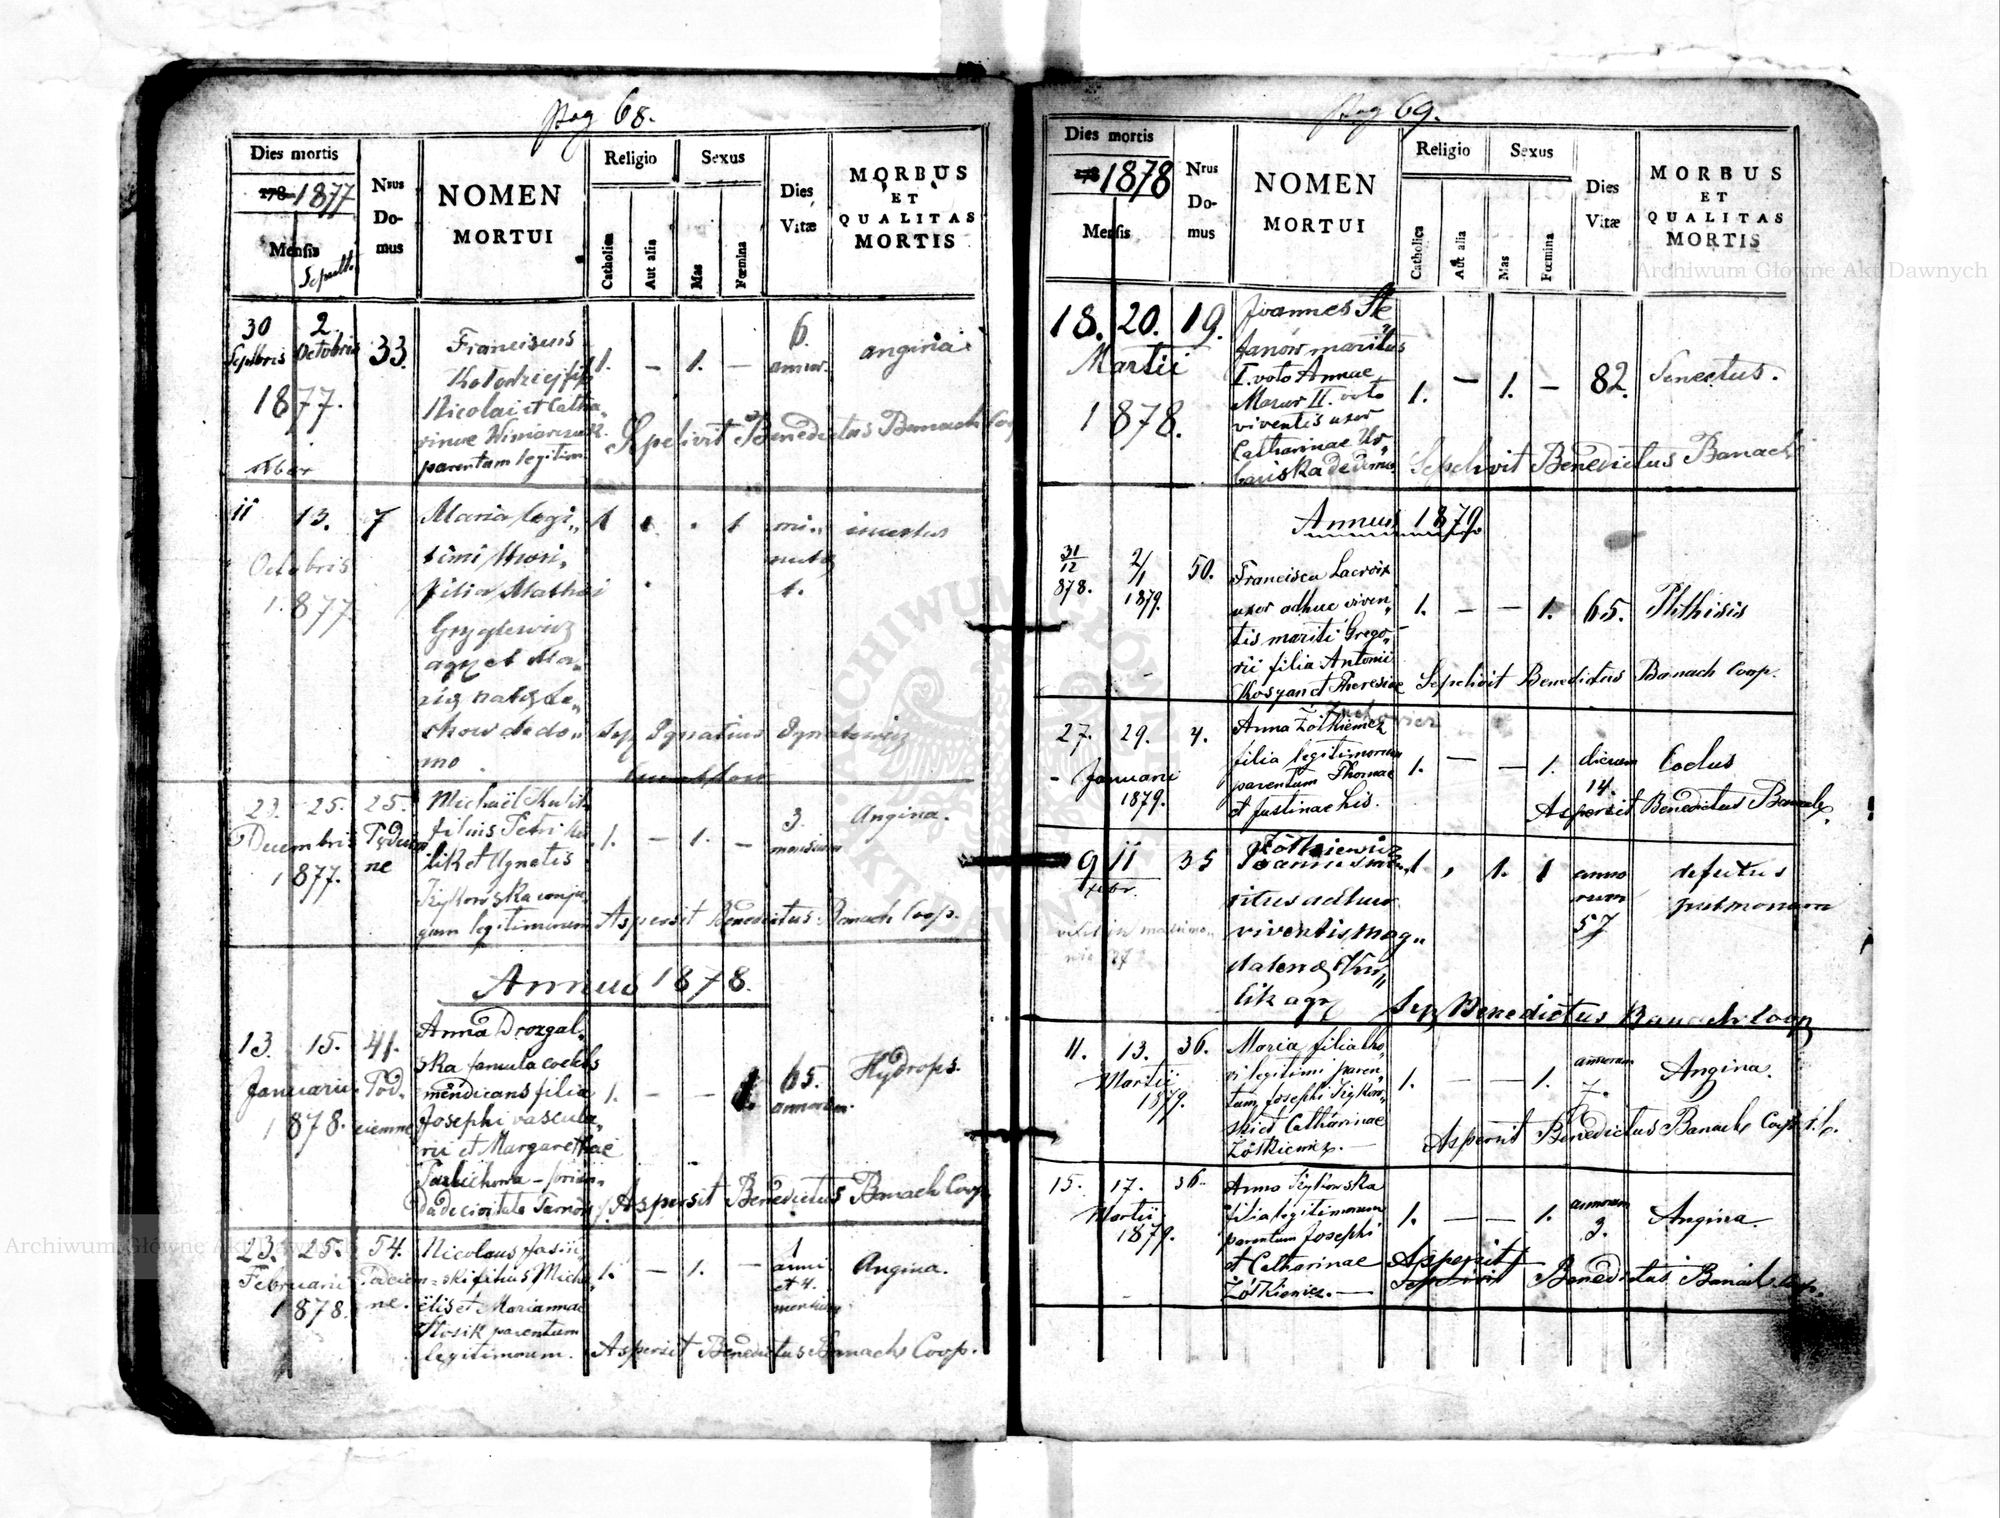 pag 68.
Dies mortis
178- 1877
Mensis
Sepult.
Nrus
Do-
mus
NOMEN
MORTUI
Religio
Catholica
Aut alia
Sexus
Mas
Fœmina
Dies
Vitæ
MORBUS
ET
QUALITAS
MORTIS
30 2. 33.
Septbris Octobris
1877.
Franciscus
Nicolai et Catha-
parentum legitim.
1. - 1. -
6.
angina
Sepelivit Benedictus Banach Coop
11 13. 7
Octobris
1877
Maria legi„
timi thori„
filia Mathei
1 1
mi„
nuta
1.
incertus
de do„
mo
Sep Ignatius Ignatowicz
23. 25. 25.
Decembris
1877.
ne
Michaël Kulik
filius Petri Ku
lik et Agnetis
legitimorum
1. - 1. -
3.
mensium
Angina.
Aspersit Benedictus Banach Coop.
Annus 1878.
13. 15. 41.
Januarii Pod„
1878. ciemne
Anna Drozgal„
ska famula coelebs
mendicans filia
Josephi vascula„
rii et Margarethae
1. - - 1.
65.
annorum.
Hydrops.
Aspersit Benedictus Banach Coop
23. 25. 54.
Februarii Podciem-
1878. ne.
Nicolaus Jasiń
ski filius Micha
ëlis et Mariannae
Kosik parentum
legitimorum.
1. - 1. -
1
anni
et 4.
mensium
Angina.
Aspersit Benedictus Banach Coop.
pag 69.
Dies mortis
178 1878
Mensis
Nrus
Do-
mus
NOMEN
MORTUI
Religio
Catholica
Aut alia
Sexus
Mas
Fœmina
Dies
Vitæ
MORBUS
ET
QUALITAS
MORTIS
18. 20. 19.
Martii
1878.
Joannes Ste
fanów maritus
I. voto Annae
Mazur II. voto
viventis uxor
Catharinae Ur„
1. - 1. -
82.
Senectus.
Sepelivit Benedictus Banach
Annus 1879.
31/12 2/1 50.
878. 1879.
Francisca Lacroix
uxor adhuc viven„
tis mariti Grego„
rii filia Antonii
et Theresiae
1. - - 1. 65. Phthisis
Sepelivit Benedictus Banach Coop.
27. 29. 4.
Januarii
1879.
Anna Żółkiewicz
filia legitimorum
parentum Thomae
et Justinae Lis.
1. - - 1.
dierum
14.
Aspersit Benedictus Banach
9 11 35
febr.
Żółkiewicz
Joannes ma„
ritus adhuc
viventis Mag„
dalenæ Ku„
lik agr
1 , 1. 1
anno
rum
57
defectus
pulmonum
Sep Benedictus Banach Coop
11. 13. 36.
Martii
1879.
Maria filia tho„
ri legitimi paren„
tum Josephi
et Catharinae
Żółkiewicz. —
1. - - 1.
annorum
7.
Angina.
Aspersit Benedictus Banach Coop.
15. 17. 36.
Martii
1879.
Anna
filia legitimorum
parentum Josephi
et Catharinae
Żółkiewicz. —
1. - - 1.
annorum
3.
Angina.
Aspersit
Sepelivit Benedictus Banach Coop.
Archiwum Główne Akt Dawnych
Archiwum Główne Akt Dawnych
ARCHIWUM GŁÓWNE AKT DAWNYCH